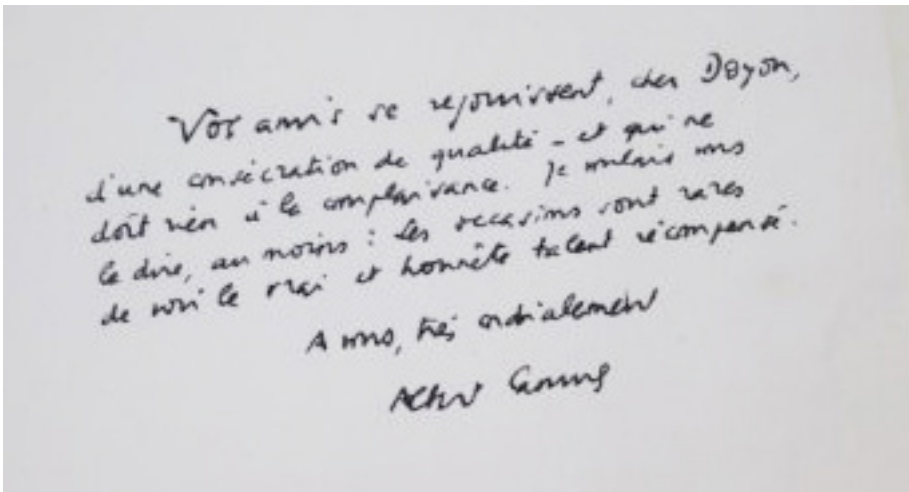 Vos amis se réjouissent, cher Doyon,
d'une consécration de qualité - et qui ne
doit rien à la complaisance. Je voulais vous
le dire, au moins : les occasions sont rares
de voir le vrai et honnête talent récompensé.
A vous, très cordialement
Albert Camus